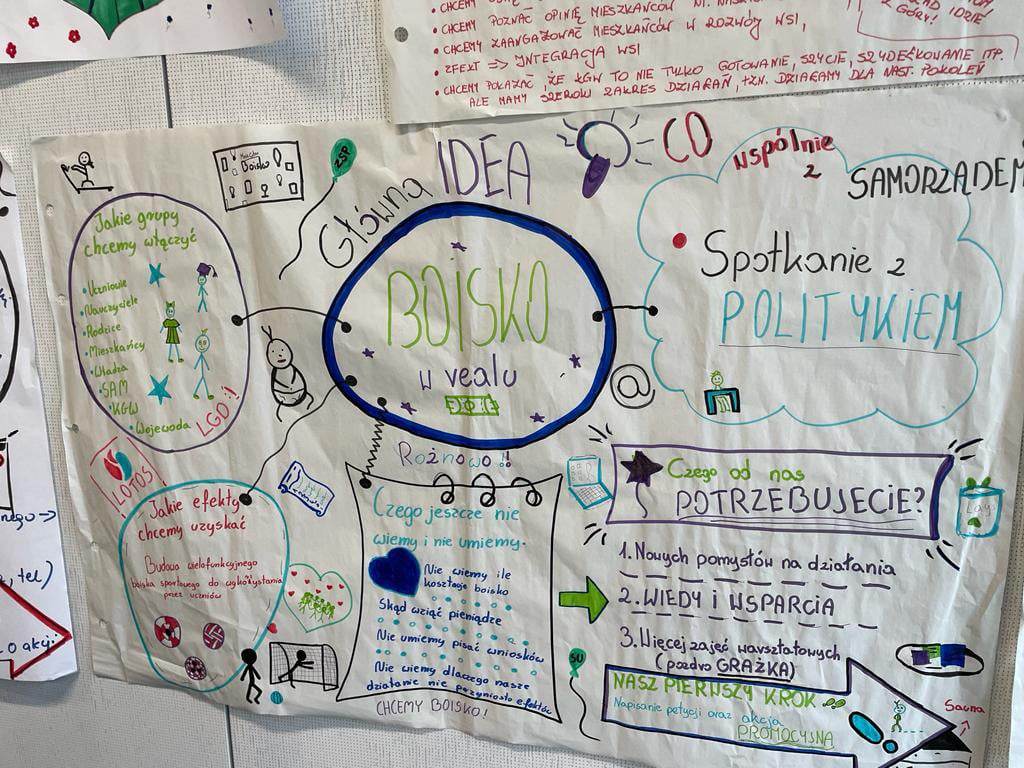 • CHCEMY POZNAĆ OPINIĘ MIESZKAŃCÓW
• CHCEMY ZAANGAŻOWAĆ MIESZKAŃCÓW W ROZWÓJ WSI,
• EFEKT => INTEGRACJA WSI
• CHCEMY POKAZAĆ, ŻE KGW TO NIE TYLKO GOTOWANIE, SZYCIE, SZYDEŁKOWANIE ITP.
ALE MAMY SZEROKI ZAKRES DZIAŁAŃ, TZN. DZIAŁAMY DLA NAST. POKOLEŃ
IDZIE
Z GÓRY!
Główna IDEA
BOISKO
w realu
Rożnowo !!
ZSP
Boisko
Jakie grupy
chcemy włączyć
• Uczniowie
• Nauczyciele
• Rodzice
• Mieszkańcy
• Władza
• SAM
• KGW
• Wojewoda
LGD:!
LOTOS!
Jakie efekty
chcemy uzyskać
Budowa wielofunkcyjnego
boiska sportowego do wykożystania
przez uczniów
Czego jeszcze nie
wiemy i nie umiemy.
Nie wiemy ile
kosztuje boisko
Skąd wziąć pieniądze
Nie umiemy pisać wniosków
Nie wiemy dlaczego nasze
działanie nie przyniosło efektów
CHCEMY BOISKO!
CO wspólnie
z
SAMORZĄDEM
Spotkanie z
POLITYKIEM
@
Czego od nas
POTRZEBUJECIE?
Lay
1. Nowych pomysłów na działania
2. WIEDY i WSPARCIA
3. Więcej zajęć warsztatowych
(pozdro GRAŻKA)
SU
NASZ PIERWSZY KROK
Napisanie petycji oraz akcja
PROMOCYJNA
Sauna
, tel)
o akcji